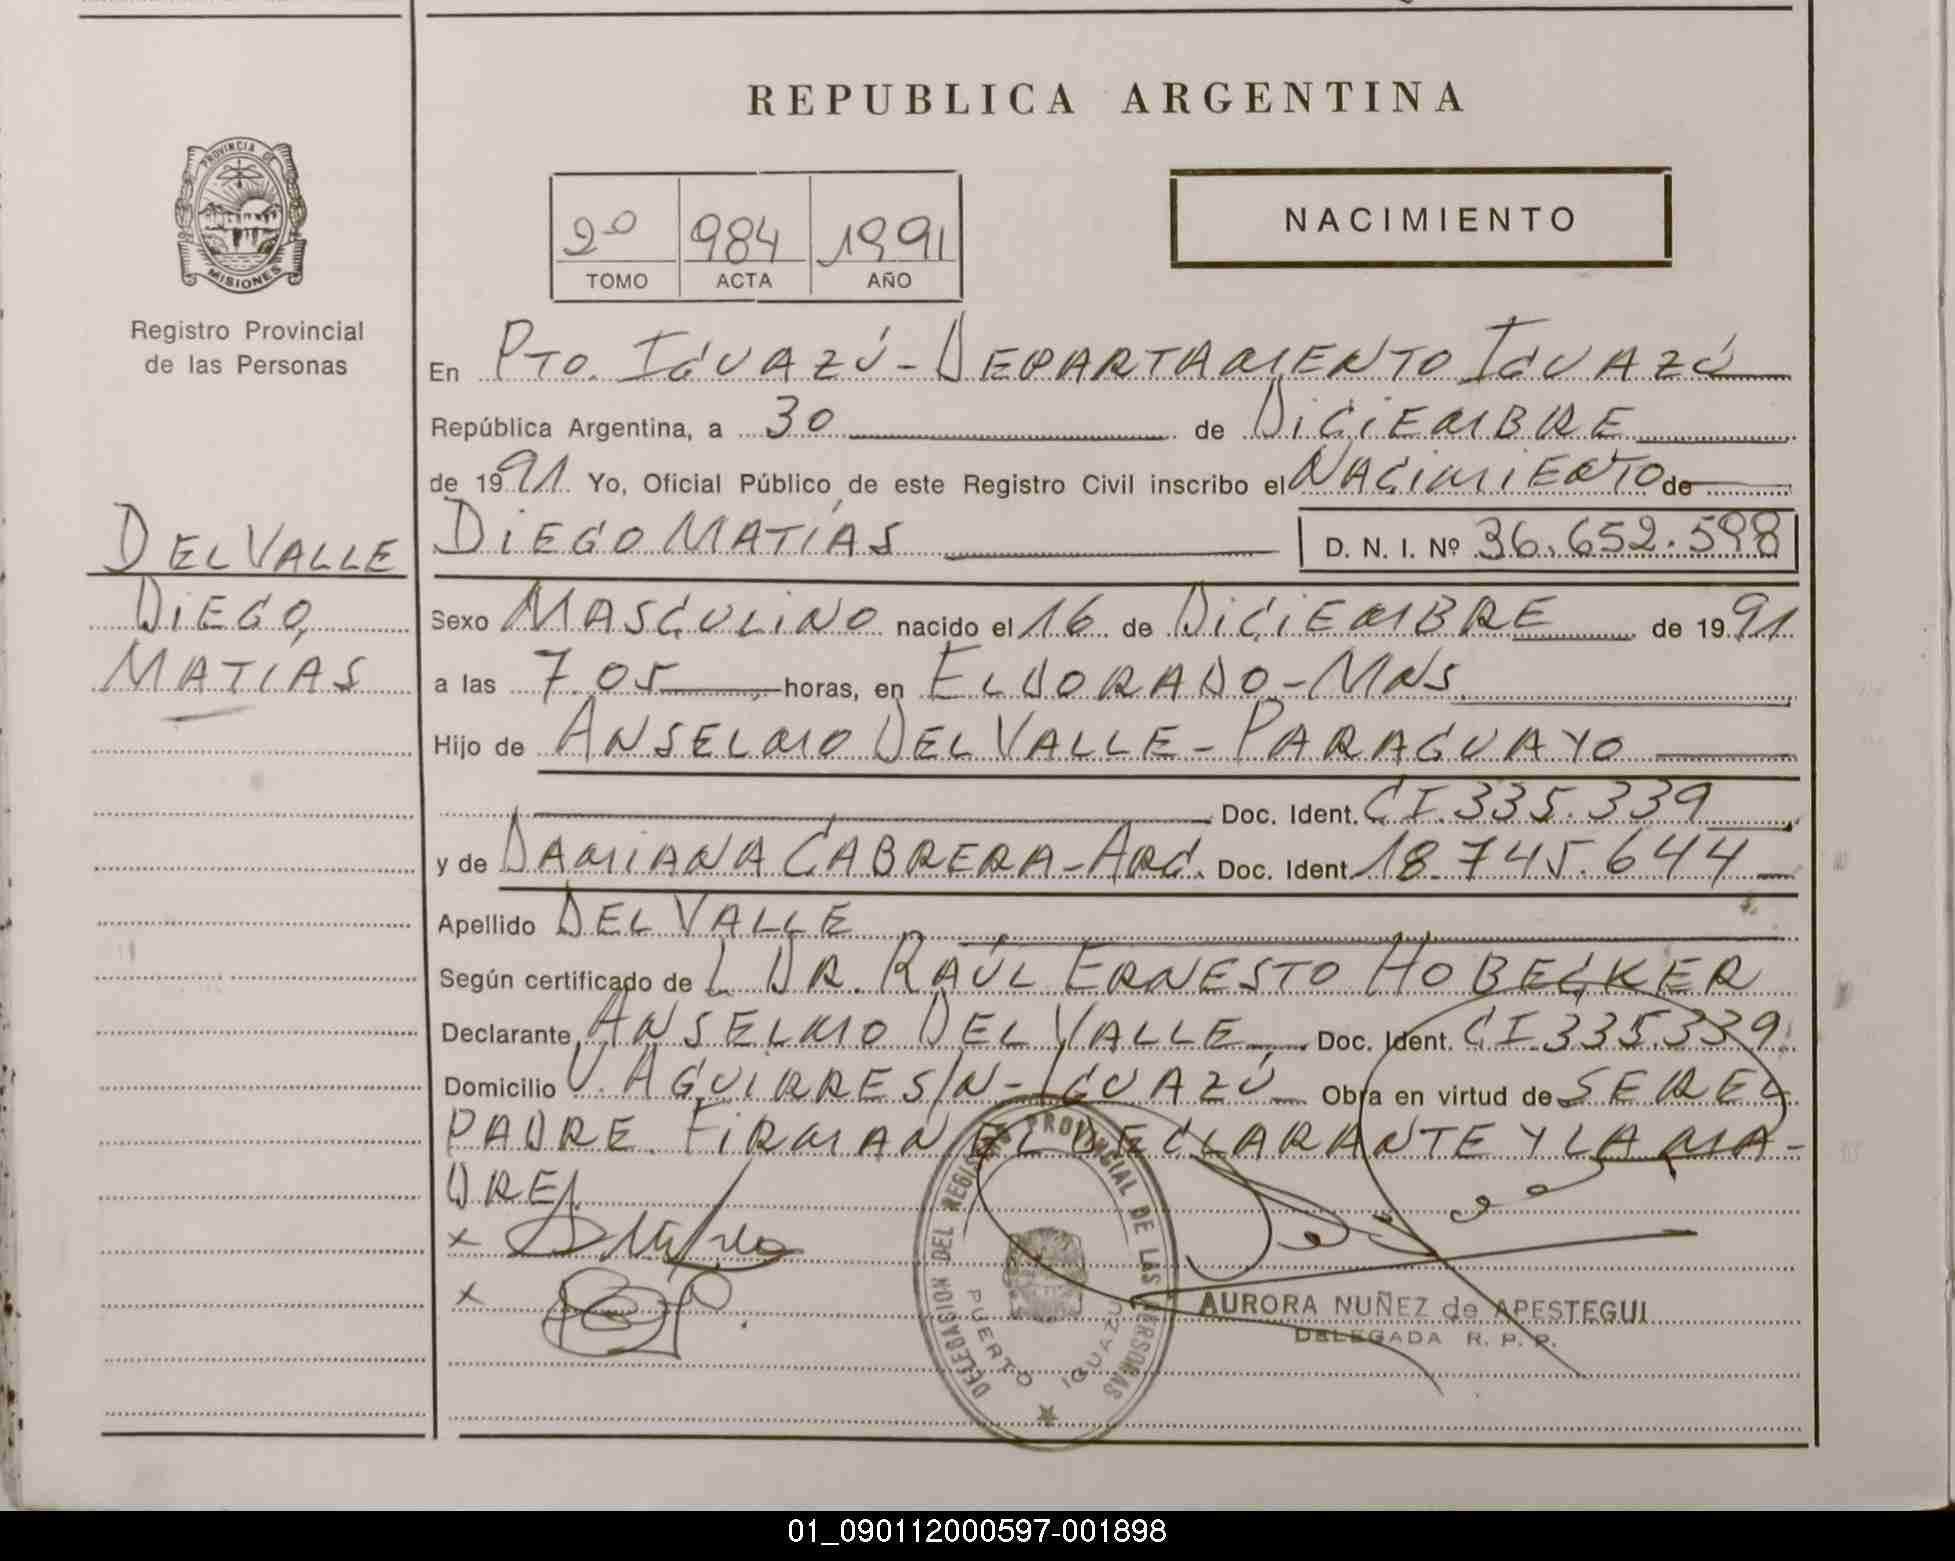 REPUBLICA ARGENTINA
PROVINCIA DE
MISIONES
Registro Provincial
de las Personas
2º 984 1991
TOMO ACTA AÑO
NACIMIENTO
En PTO. IGUAZÚ - DEPARTAMENTO IGUAZÚ
República Argentina, a 30 de DICIEMBRE
de 1991 Yo, Oficial Público de este Registro Civil inscribo el NACIMIENTO de
DEL VALLE
DIEGO,
MATÍAS
DIEGO MATÍAS D. N. I. Nº 36.652.598
Sexo MASCULINO nacido el 16 de DICIEMBRE de 1991
a las 7 05 horas, en ELDORADO - MNS.
Hijo de ANSELMO DEL VALLE - PARAGUAYO
Doc. Ident. CI. 335.339
y de DAMIANA CABRERA - ARG. Doc. Ident. 18.745.644
Apellido DEL VALLE
Según certificado de L DR. RAÚL ERNESTO HOBECKER
Declarante ANSELMO DEL VALLE Doc. Ident. CI. 335.339
Domicilio V. AGUIRRE S/N - IGUAZÚ Obra en virtud de SER EL
PADRE. FIRMAN EL DECLARANTE Y LA MA-
DRE.
x
x
DELEGACION DEL REGISTRO PROVINCIAL DE LAS PERSONAS
PUERTO IGUAZU
AURORA NUÑEZ de APESTEGUI
DELEGADA R. P. P.
01_090112000597-001898